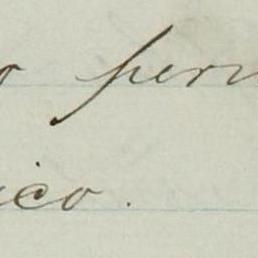 o pern
ico.